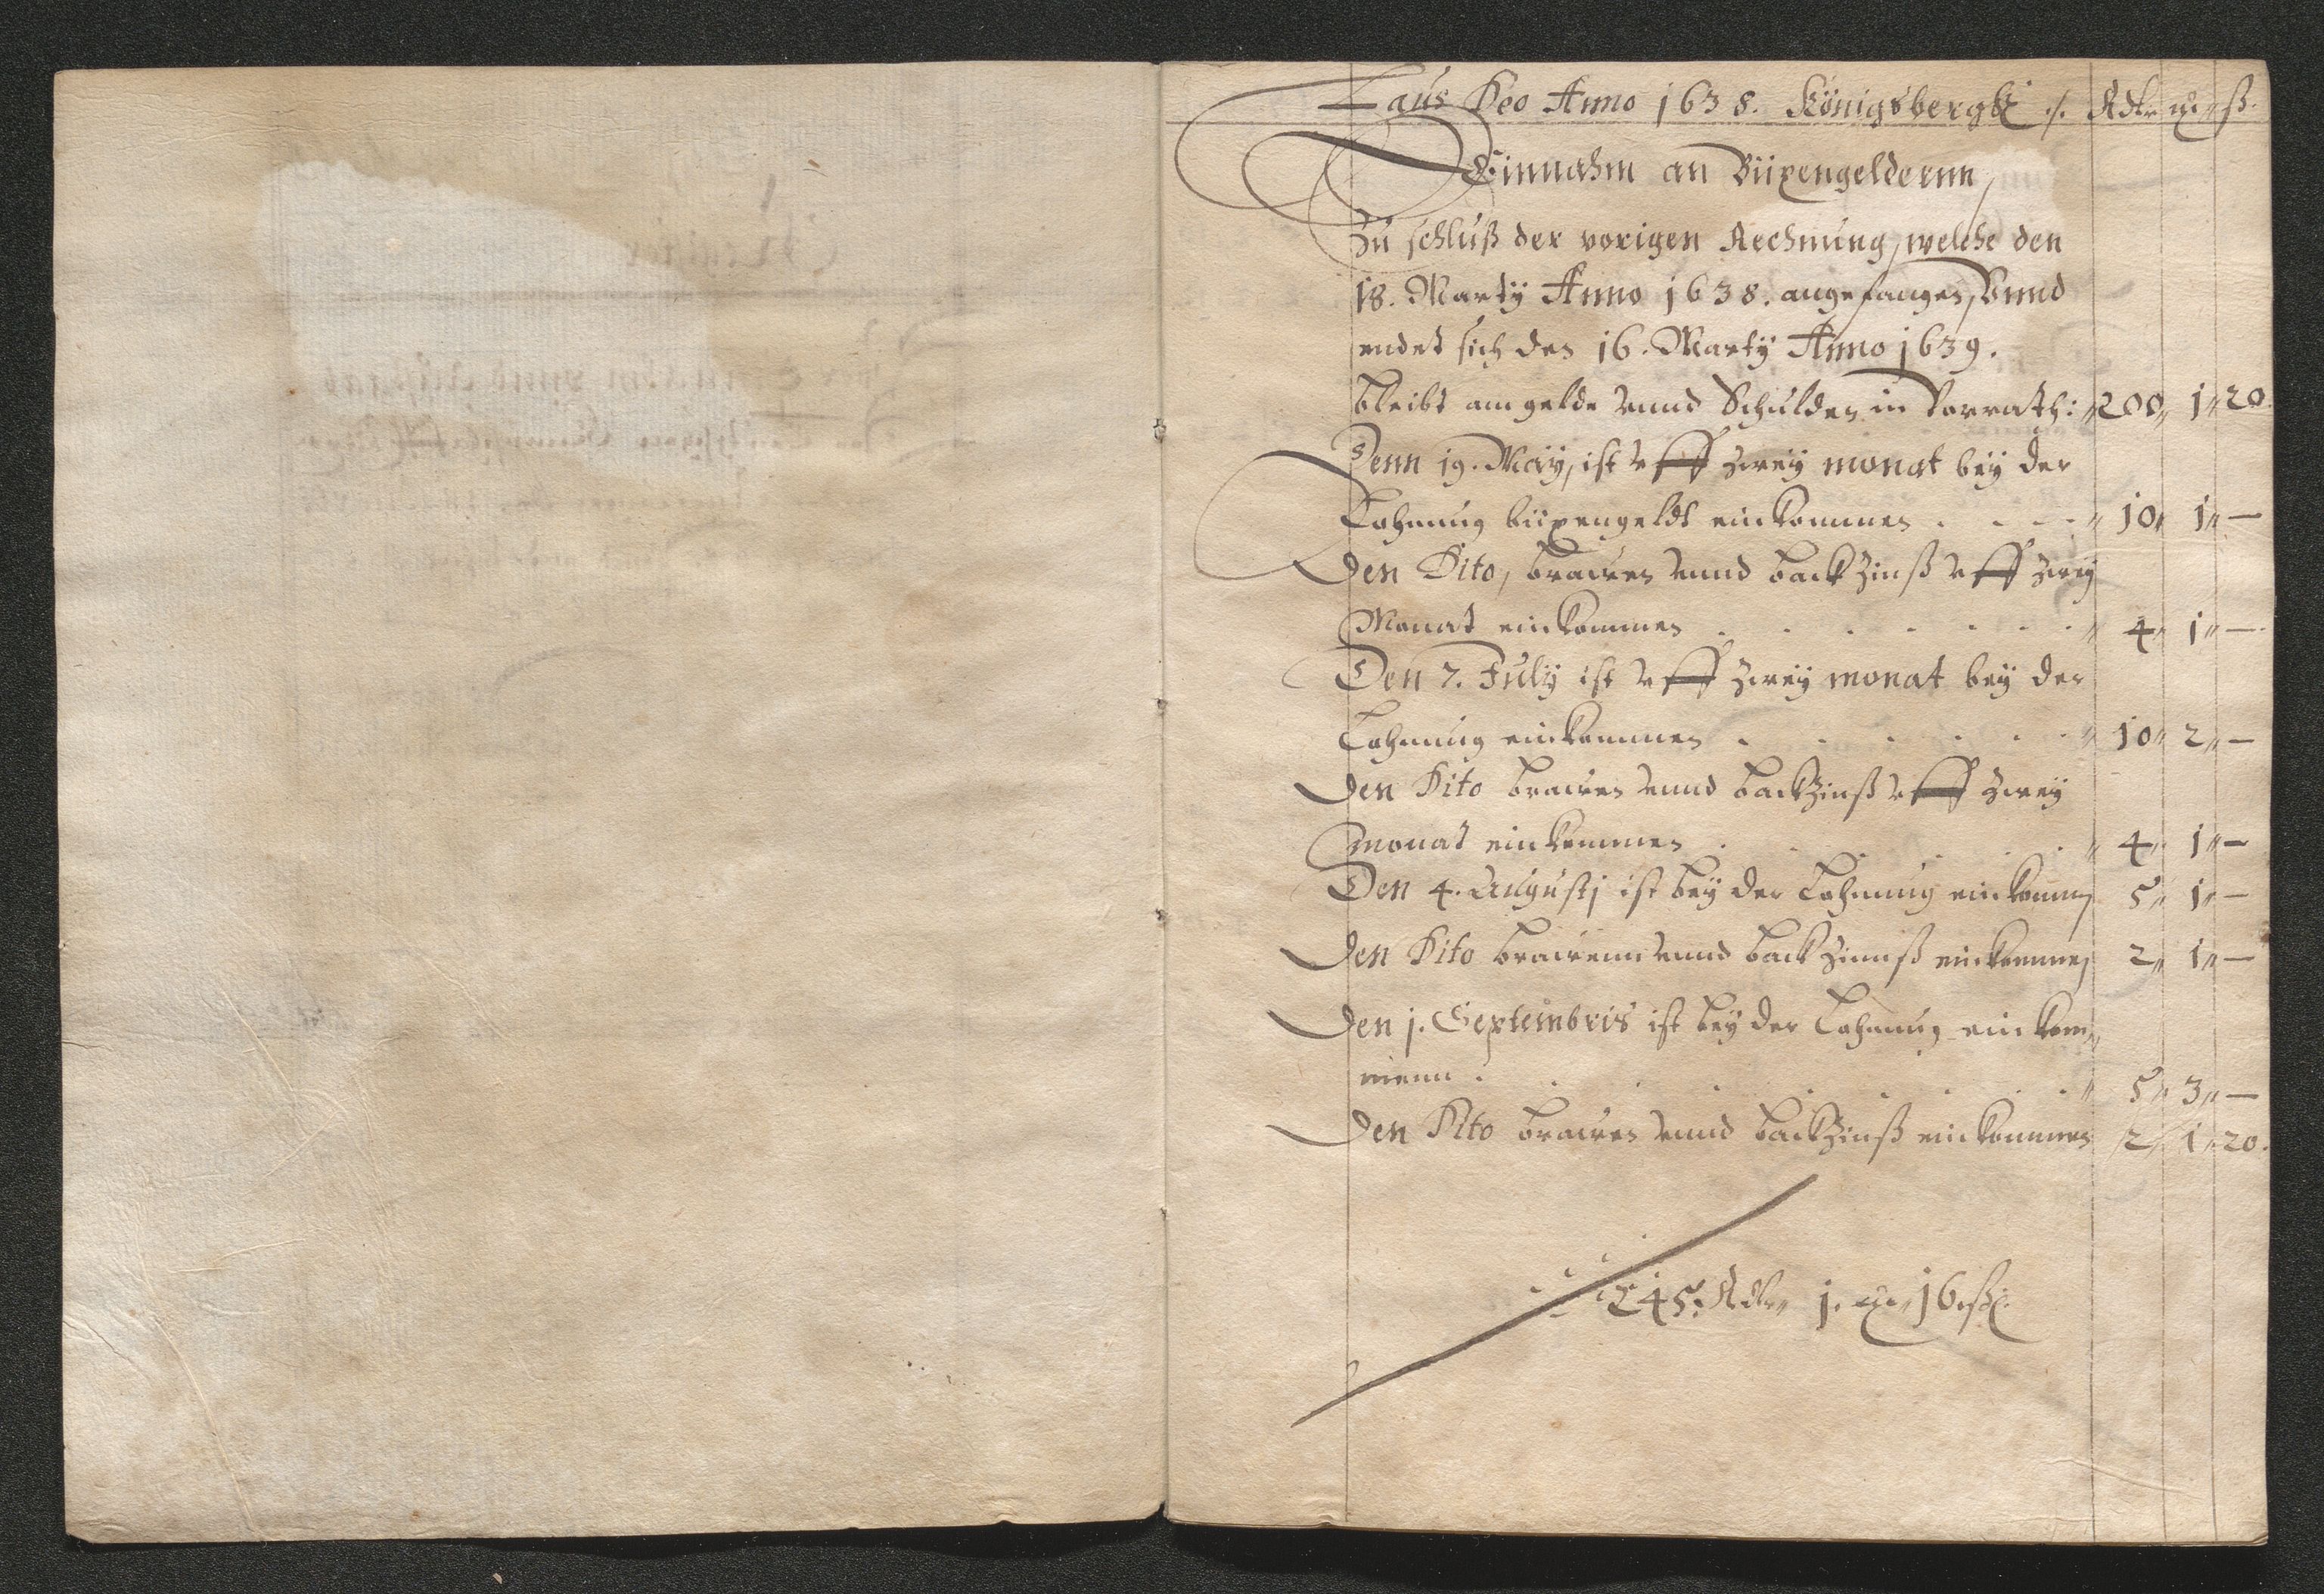 Laus Deo Anno 1638. Königsbergk ./. Rdlr
Einnahm an Büxengeldernn,
Zu schluß der vorigen Rechnung, welche den
18. Marty Anno 1638. angefangen, Vnnd
endet sich den 16. Marty Anno 1639.
bleibt am gelde vnnd Schulden in Vorrath: 200 1 20.
Denn 19. May, ist vff zwey monat bey der
Lohnung büxengeldt einkommen . . . 10 1 —
Den Dito, brawen vnnd back Zinß vff zwey
Monat einkommen . . . . . . . 4 1 —
Den 7. July ist vff zwey monat bey der
Lohnung einkommen . . . . . . 10 2 —
Den Dito brawen vnnd backZinß vff zwey
monat einkommen . . . . . . 4 1 —
Den 4. Augustj ist bey der Lohnung einkommen 5 1 —
Den Dito brawenn vnnd back Zinnß einkommen 2 1 —
Den 1. Septembris ist bey der Lohnung ein kom„
menn . . . . . . . . 5 3 —
Den Dito brawen vnnd backZinß einkommen 2 1 20.
245. Rdlr 1. 16. ß